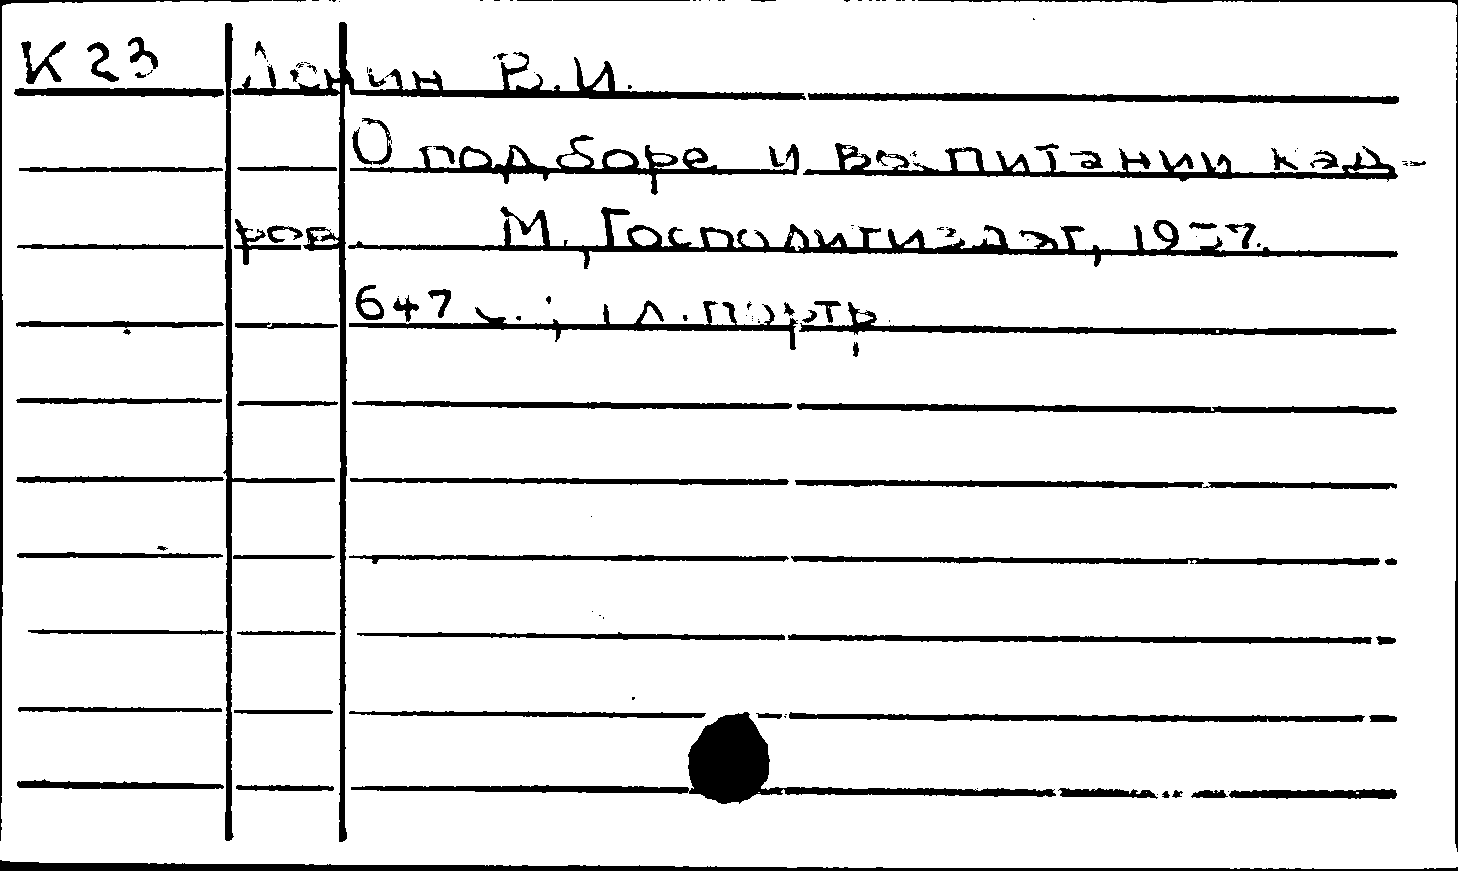 К 23 Ленин В.И.
О подборе и воспитании кад-
ров. М., Госполитиздат, 1957.
647 с.; 1 л. портр